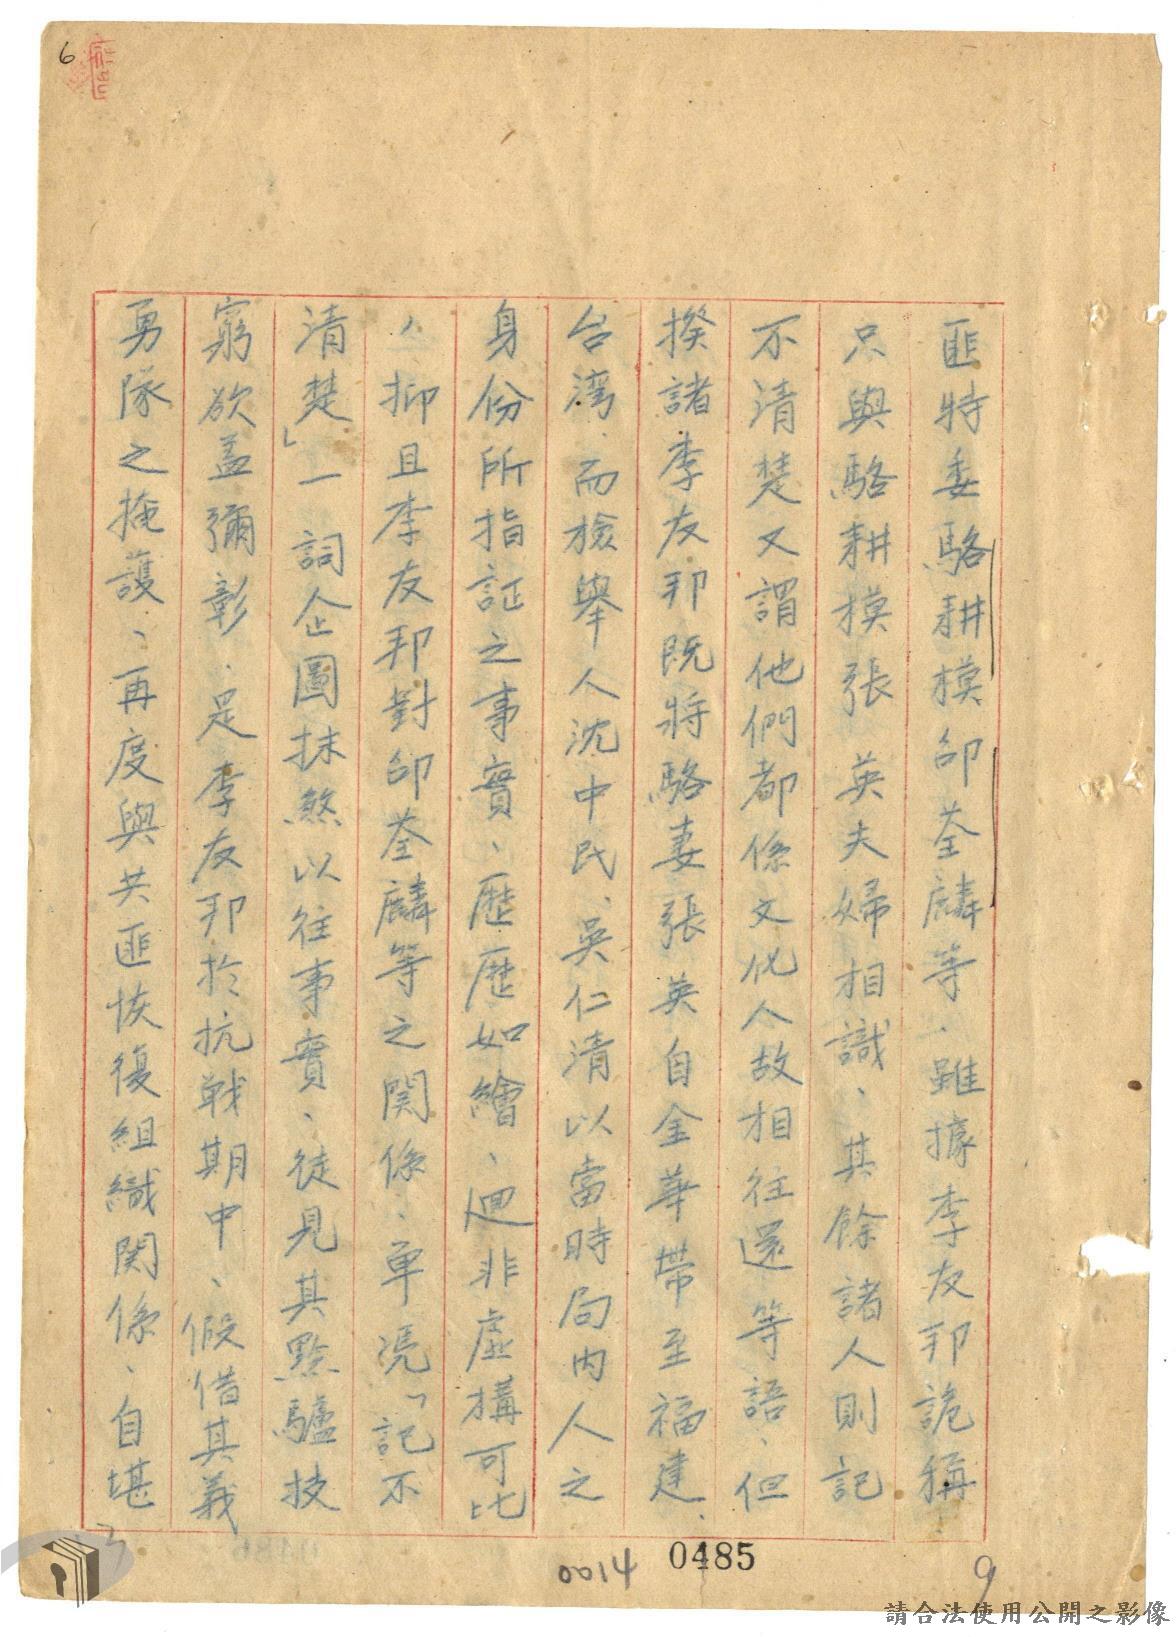 6
匪特委駱耕模邵荃麟等、雖據李友邦詭稱、
只與駱耕模張 英夫婦相識、其餘諸人則記
不清楚又謂他們都係文化人故相往還等語、但
揆諸李友邦既將駱妻張英自金華帶至福建、
台湾、而檢舉人沈中民、吳仁清以當時局內人之
身份所指証之事實、歷歷如繪、迥非虛構可比
、抑且李友邦對邵荃麟等之関係、单凭「記不
清楚」一詞企圖抹煞以往事實、徒見其黔驢技
窮欲盖彌彰、是李友邦於抗戰期中、假借其義
勇隊之掩護、再度與共匪恢復組織関係、自堪
0014
0485
9
請合法使用公開之影像